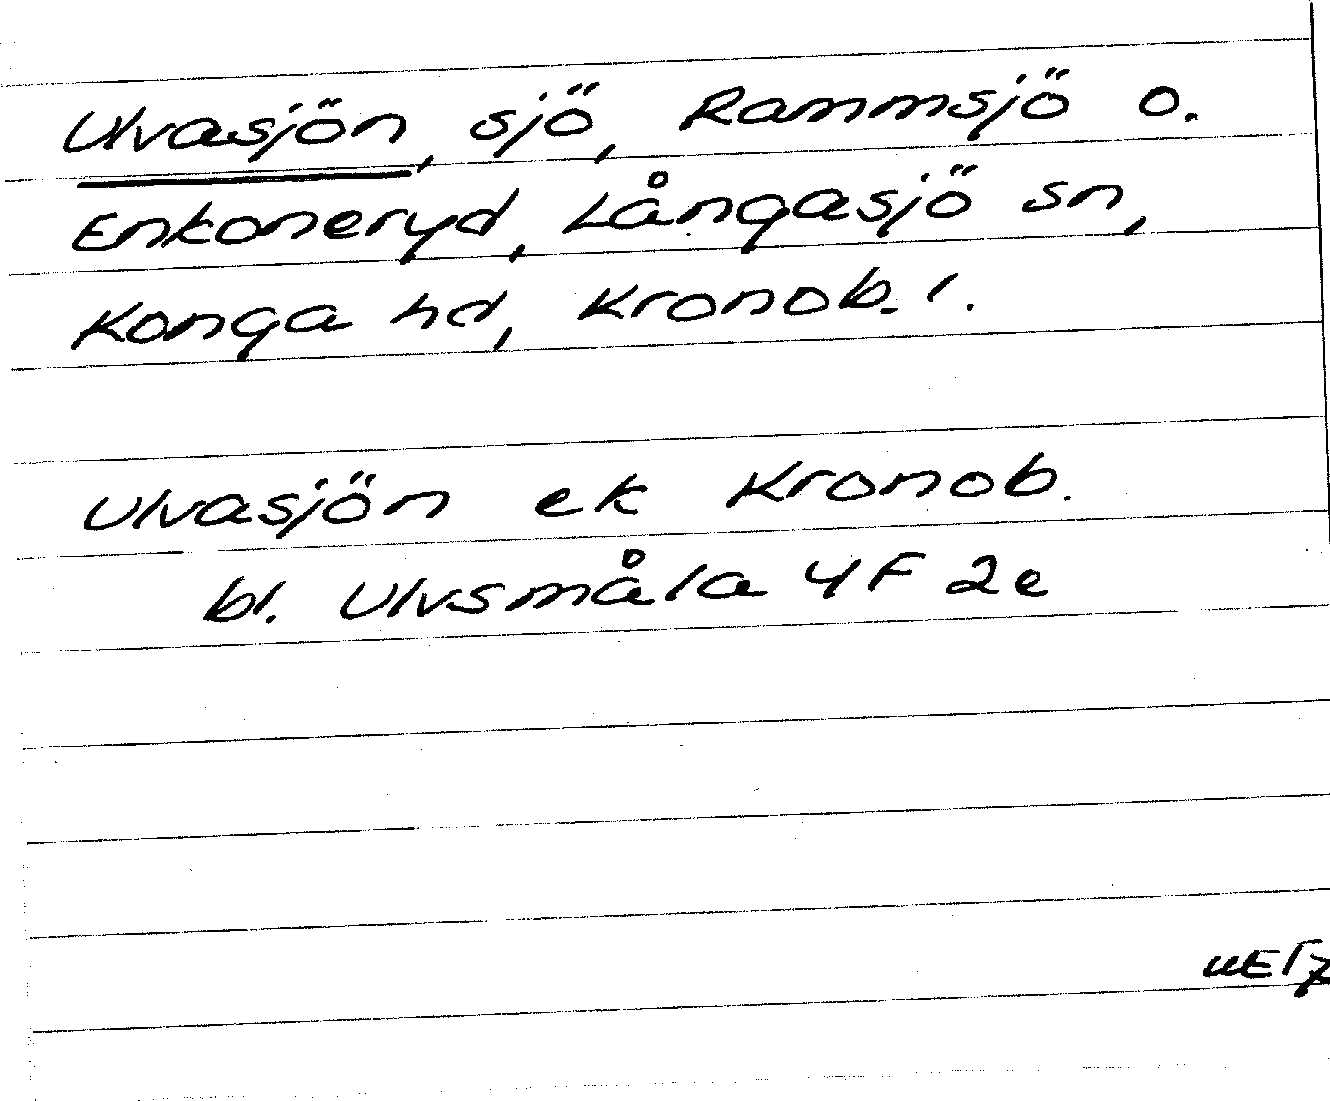 Ulvasjön, sjö, Rammsjö o.
Enkoneryd, Långasjö sn,
Konga hd, Kronob. l.
Ulvasjön ek Kronob.
bl. Ulvsmåla 4F 2e